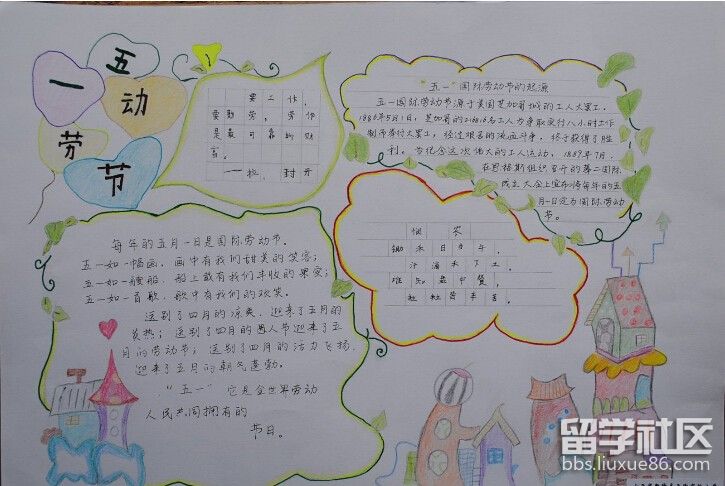 五一
劳动
节
要工作,
要勤劳,劳作
是最可靠的财
富。
——拉,封丹
"五一"国际劳动节的起源
五一国际劳动节源于美国芝加哥城的工人大罢工。
1886年5月1日,芝加哥的216000余工人为争取实行八小时工作
制而举行大罢工,经过艰苦的流血斗争,终于获得了胜
利。为纪念这次伟大的工人运动,1889年7月,
在恩格斯组织召开的第二国际
成立大会上宣布将每年的五
月一日定为国际劳动
节。
悯农
锄禾日当午,
汗滴禾下土。
谁知盘中餐,
粒粒皆辛苦。
每年的五月一日是国际劳动节。
五一如一幅画,画中有我们甜美的笑容;
五一如一艘船,船上载有我们丰收的果实;
五一如一首歌,歌中有我们的欢笑。
送别了四月的凉爽,迎来了五月的
炎热;送别了四月的愚人节迎来了五
月的劳动节;送别了四月的活力飞扬,
迎来了五月的朝气蓬勃。
"五一"它是全世界劳动
人民共同拥有的
节日。
留学社区
bbs.liuxue86.com